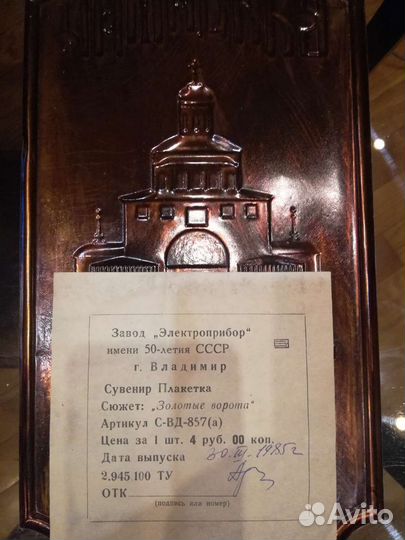 Завод „Электроприбор"
имени 50-летия СССР
г. Владимир
Сувенир Плакетка
Сюжет: „Золотые ворота"
Артикул С-ВД-857(а)
Цена за 1 шт. 4 руб. 00 коп.
Дата выпуска 30.III.1985г
2.945.100 ТУ
ОТК
(подпись или номер)
Avito